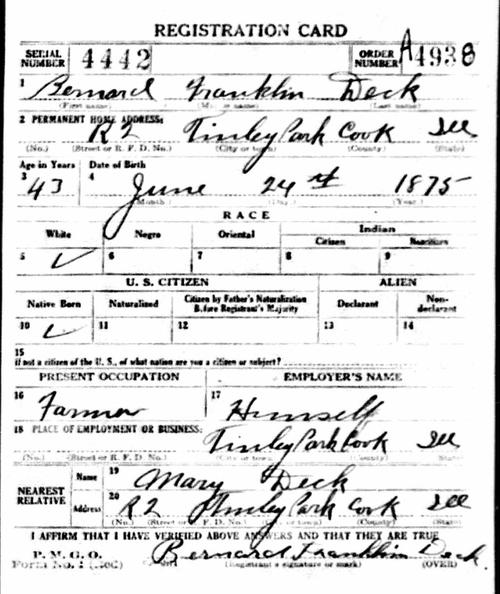 REGISTRATION CARD
SERIAL NUMBER 4442 ORDER NUMBER A4938
1 Bernard Franklin Deck
(First name) (Middle name) (Last name)
2 PERMANENT HOME ADDRESS:
R2 Tinley Park Cook Ill
(No.) (Street or R. F. D. No.) (City or town) (County) (State)
Age in Years Date of Birth
3 43 4 June 24th 1875
(Month.) (Day.) (Year.)
RACE
White Negro Oriental Indian
Citizen Noncitizen
5 ✓ 6 7 8 9
U. S. CITIZEN ALIEN
Native Born Naturalized Citizen by Father's Naturalization Before Registrant's Majority Declarant Non-declarant
10 ✓ 11 12 13 14
15
If not a citizen of the U. S., of what nation are you a citizen or subject?
PRESENT OCCUPATION EMPLOYER'S NAME
16 Farmer 17 Himself
18 PLACE OF EMPLOYMENT OR BUSINESS:
Tinley Park Cook Ill
(No.) (Street or R. F. D. No.) (City or town) (County) (State)
NEAREST RELATIVE
Name 19 Mary Deck
Address 20 R2 Tinley Park Cook Ill
(No.) (Street or R. F. D. No.) (City or town) (County) (State)
I AFFIRM THAT I HAVE VERIFIED ABOVE ANSWERS AND THAT THEY ARE TRUE
P. M. G. O.
Form No. 1 (Red) Bernard Franklin Deck
(Registrant's signature or mark) (OVER)